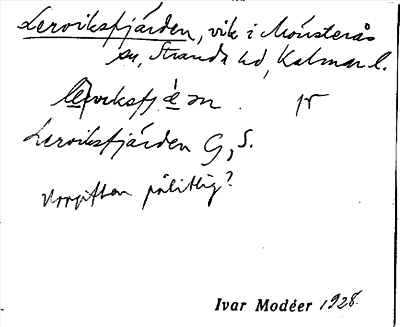 Lerviksfjärden, vik i Mönsterås
sn, Stranda hd, Kalmar l.
le͟rviksfjä̀ ɷn. 1r
Lerviksfjärden G, S.
Uppgiften pålitlig?
Ivar Modéer 1928.